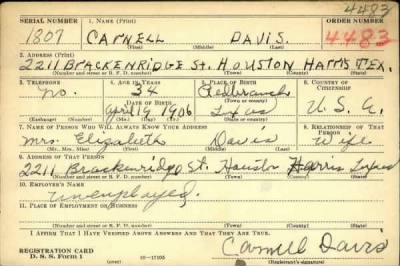 4483
SERIAL NUMBER 1. NAME (Print) ORDER NUMBER
1807 CARNELL DAVIS. 4483
(First) (Middle) (Last)
2. ADDRESS (Print)
2211 BRACKENRIDGE St. HOUSTON HARRIS TEX.
(Number and street or R. F. D. number) (Town) (County) (State)
3. TELEPHONE 4. AGE IN YEARS 5. PLACE OF BIRTH 6. COUNTRY OF CITIZENSHIP
no. 34 Redbranch
DATE OF BIRTH (Town or county)
April 19 1906 Texas U.S.A.
(Exchange) (Number) (Mo.) (Day) (Yr.) (State or country)
7. NAME OF PERSON WHO WILL ALWAYS KNOW YOUR ADDRESS 8. RELATIONSHIP OF THAT PERSON
Mrs. Elizabeth Davis Wife
(Mr., Mrs., Miss) (First) (Middle) (Last)
9. ADDRESS OF THAT PERSON
2211 Brackenridge St. Houston Harris Texas
(Number and street or R. F. D. number) (Town) (County) (State)
10. EMPLOYER'S NAME
unemployed.
11. PLACE OF EMPLOYMENT OR BUSINESS
(Number and street or R. F. D. number) (Town) (County) (State)
I AFFIRM THAT I HAVE VERIFIED ABOVE ANSWERS AND THAT THEY ARE TRUE.
REGISTRATION CARD
D. S. S. Form 1 16—17105 Carnell Davis
(Registrant's signature)